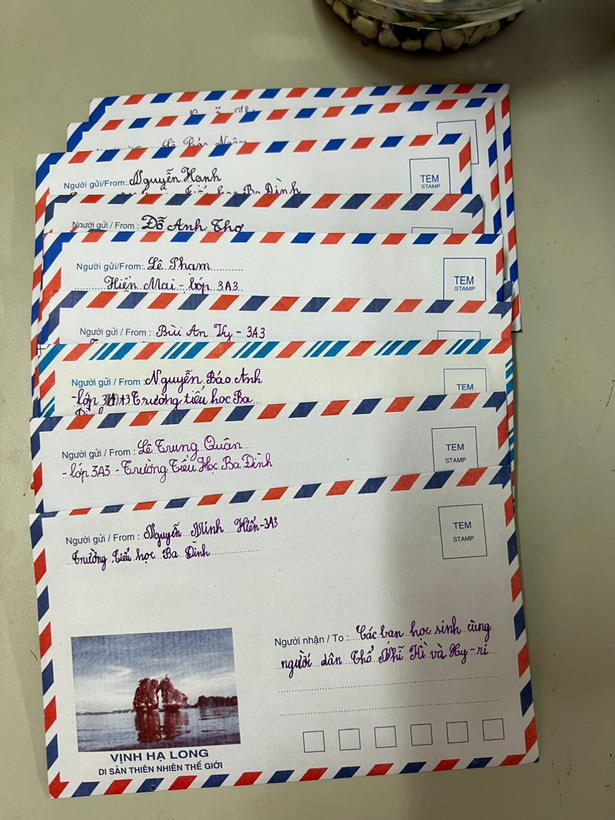 Lê Bảo Ngân
Người gửi/From: Nguyễn Hạnh
Tiểu học Ba Đình
TEM
STAMP
Người gửi / From : Đỗ Anh Thơ
Người gửi/From: Lê Tham
Hiền Mai - lớp 3A3
TEM
STAMP
Người gửi / From : Bùi An Vy - 3A3
Người gửi / From : Nguyễn Bảo Anh
- lớp Trường tiểu học Ba
Đình
TEM
Người gửi / From : Lê Trung Quân
- lớp 3A3 - Trường Tiểu Học Ba Đình
TEM
STAMP
Người gửi / From : Nguyễn Minh Hiển - 3A3
Trường tiểu học Ba Đình
TEM
STAMP
Người nhận / To : Các bạn học sinh cùng
người dân Thổ Nhĩ Kì và Xy-ri
VỊNH HẠ LONG
DI SẢN THIÊN NHIÊN THẾ GIỚI